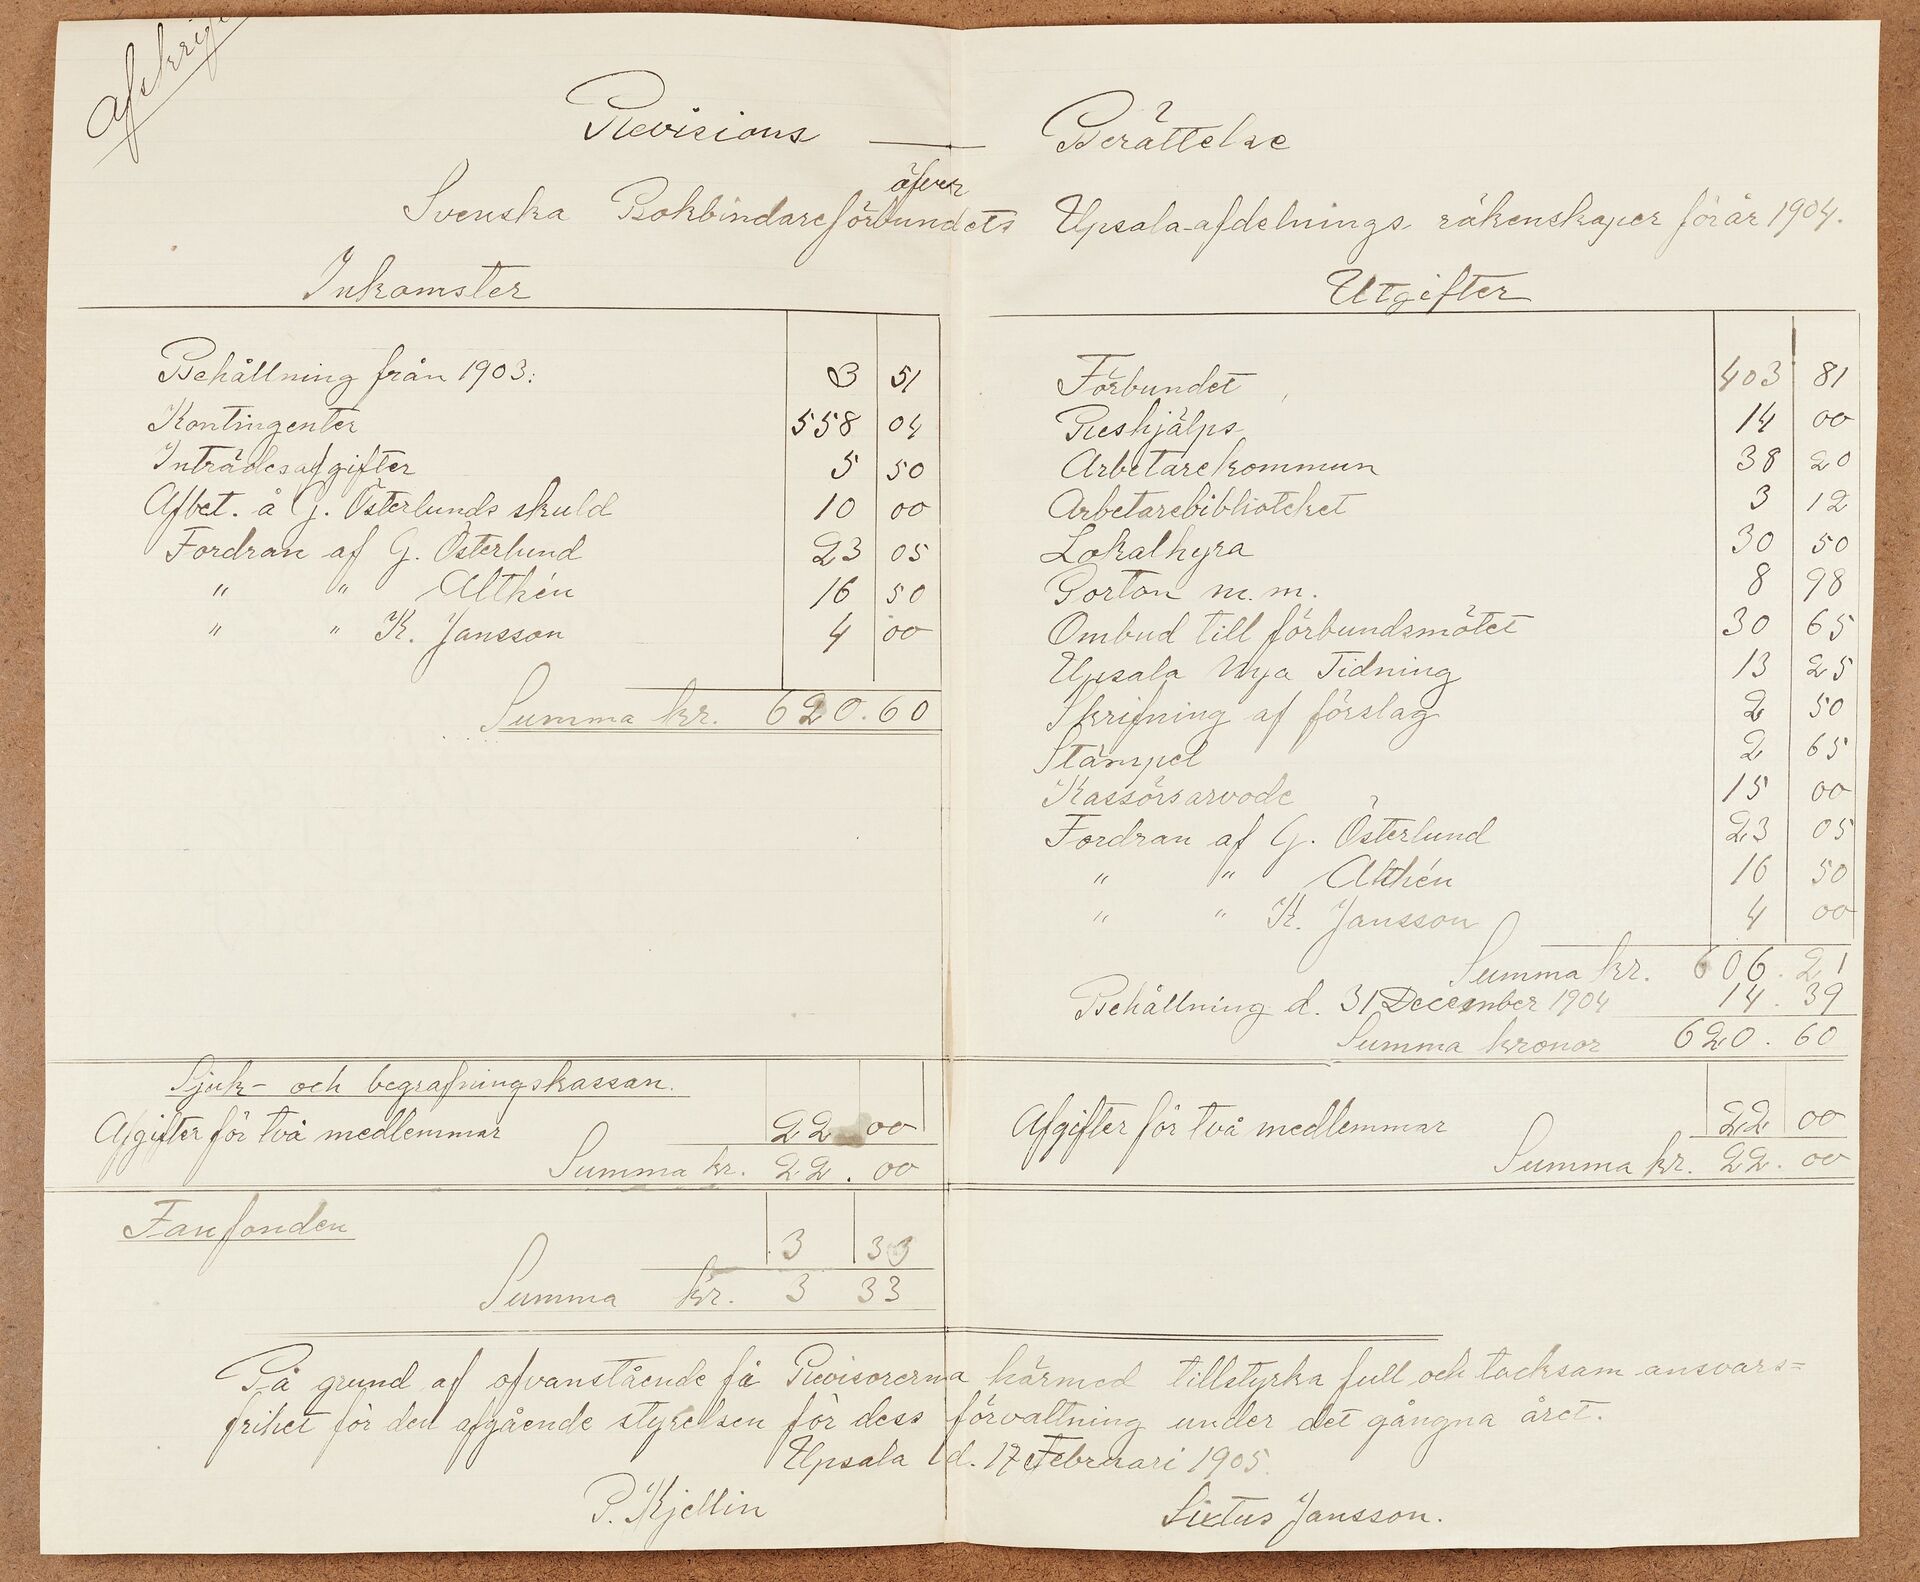 Afskrift
Revisions — Berättelse
öfver
Svenska Bokbindareförbundets Upsala-afdelnings räkenskaper för år 1904.
Inkomster
Behållning från 1903: 3 51
Kontingenter 558 04
Inträdesafgifter 5 50
Afbet. å G. Österlunds skuld 10 00
Fordran af G. Österlund 23 05
" " Althén 16 50
" " K. Jansson 4 00
Summa kr. 620.60
Utgifter
Förbundet 403 81
Reshjälps 14 00
Arbetarekommun 38 20
Arbetarebiblioteket 3 12
Lokalhyra 30 50
Porton m.m. 8 98
Ombud till förbundsmötet 30 65
Upsala Nya Tidning 13 25
Skrifning af förslag 2 50
Stämpel 2 65
Kassörsarvode 15 00
Fordran af G. Österlund 23 05
" " Althén 16 50
" " K. Jansson 4 00
Summa kr. 606.21
Behållning d. 31 December 1904 14.39
Summa kronor 620.60
Sjuk- och begrafningskassan.
Afgifter för två medlemmar 22 00
Summa kr. 22.00
Afgifter för två medlemmar 22 00
Summa kr. 22.00
Fanfonden
3 33
Summa kr. 3 33
På grund af ofvanstående få Revisorerna härmed tillstyrka full och tacksam ansvars=
frihet för den afgående styrelsen för dess förvaltning under det gångna året.
Upsala d. 17 Februari 1905.
P. Kjellin Sixtus Jansson.